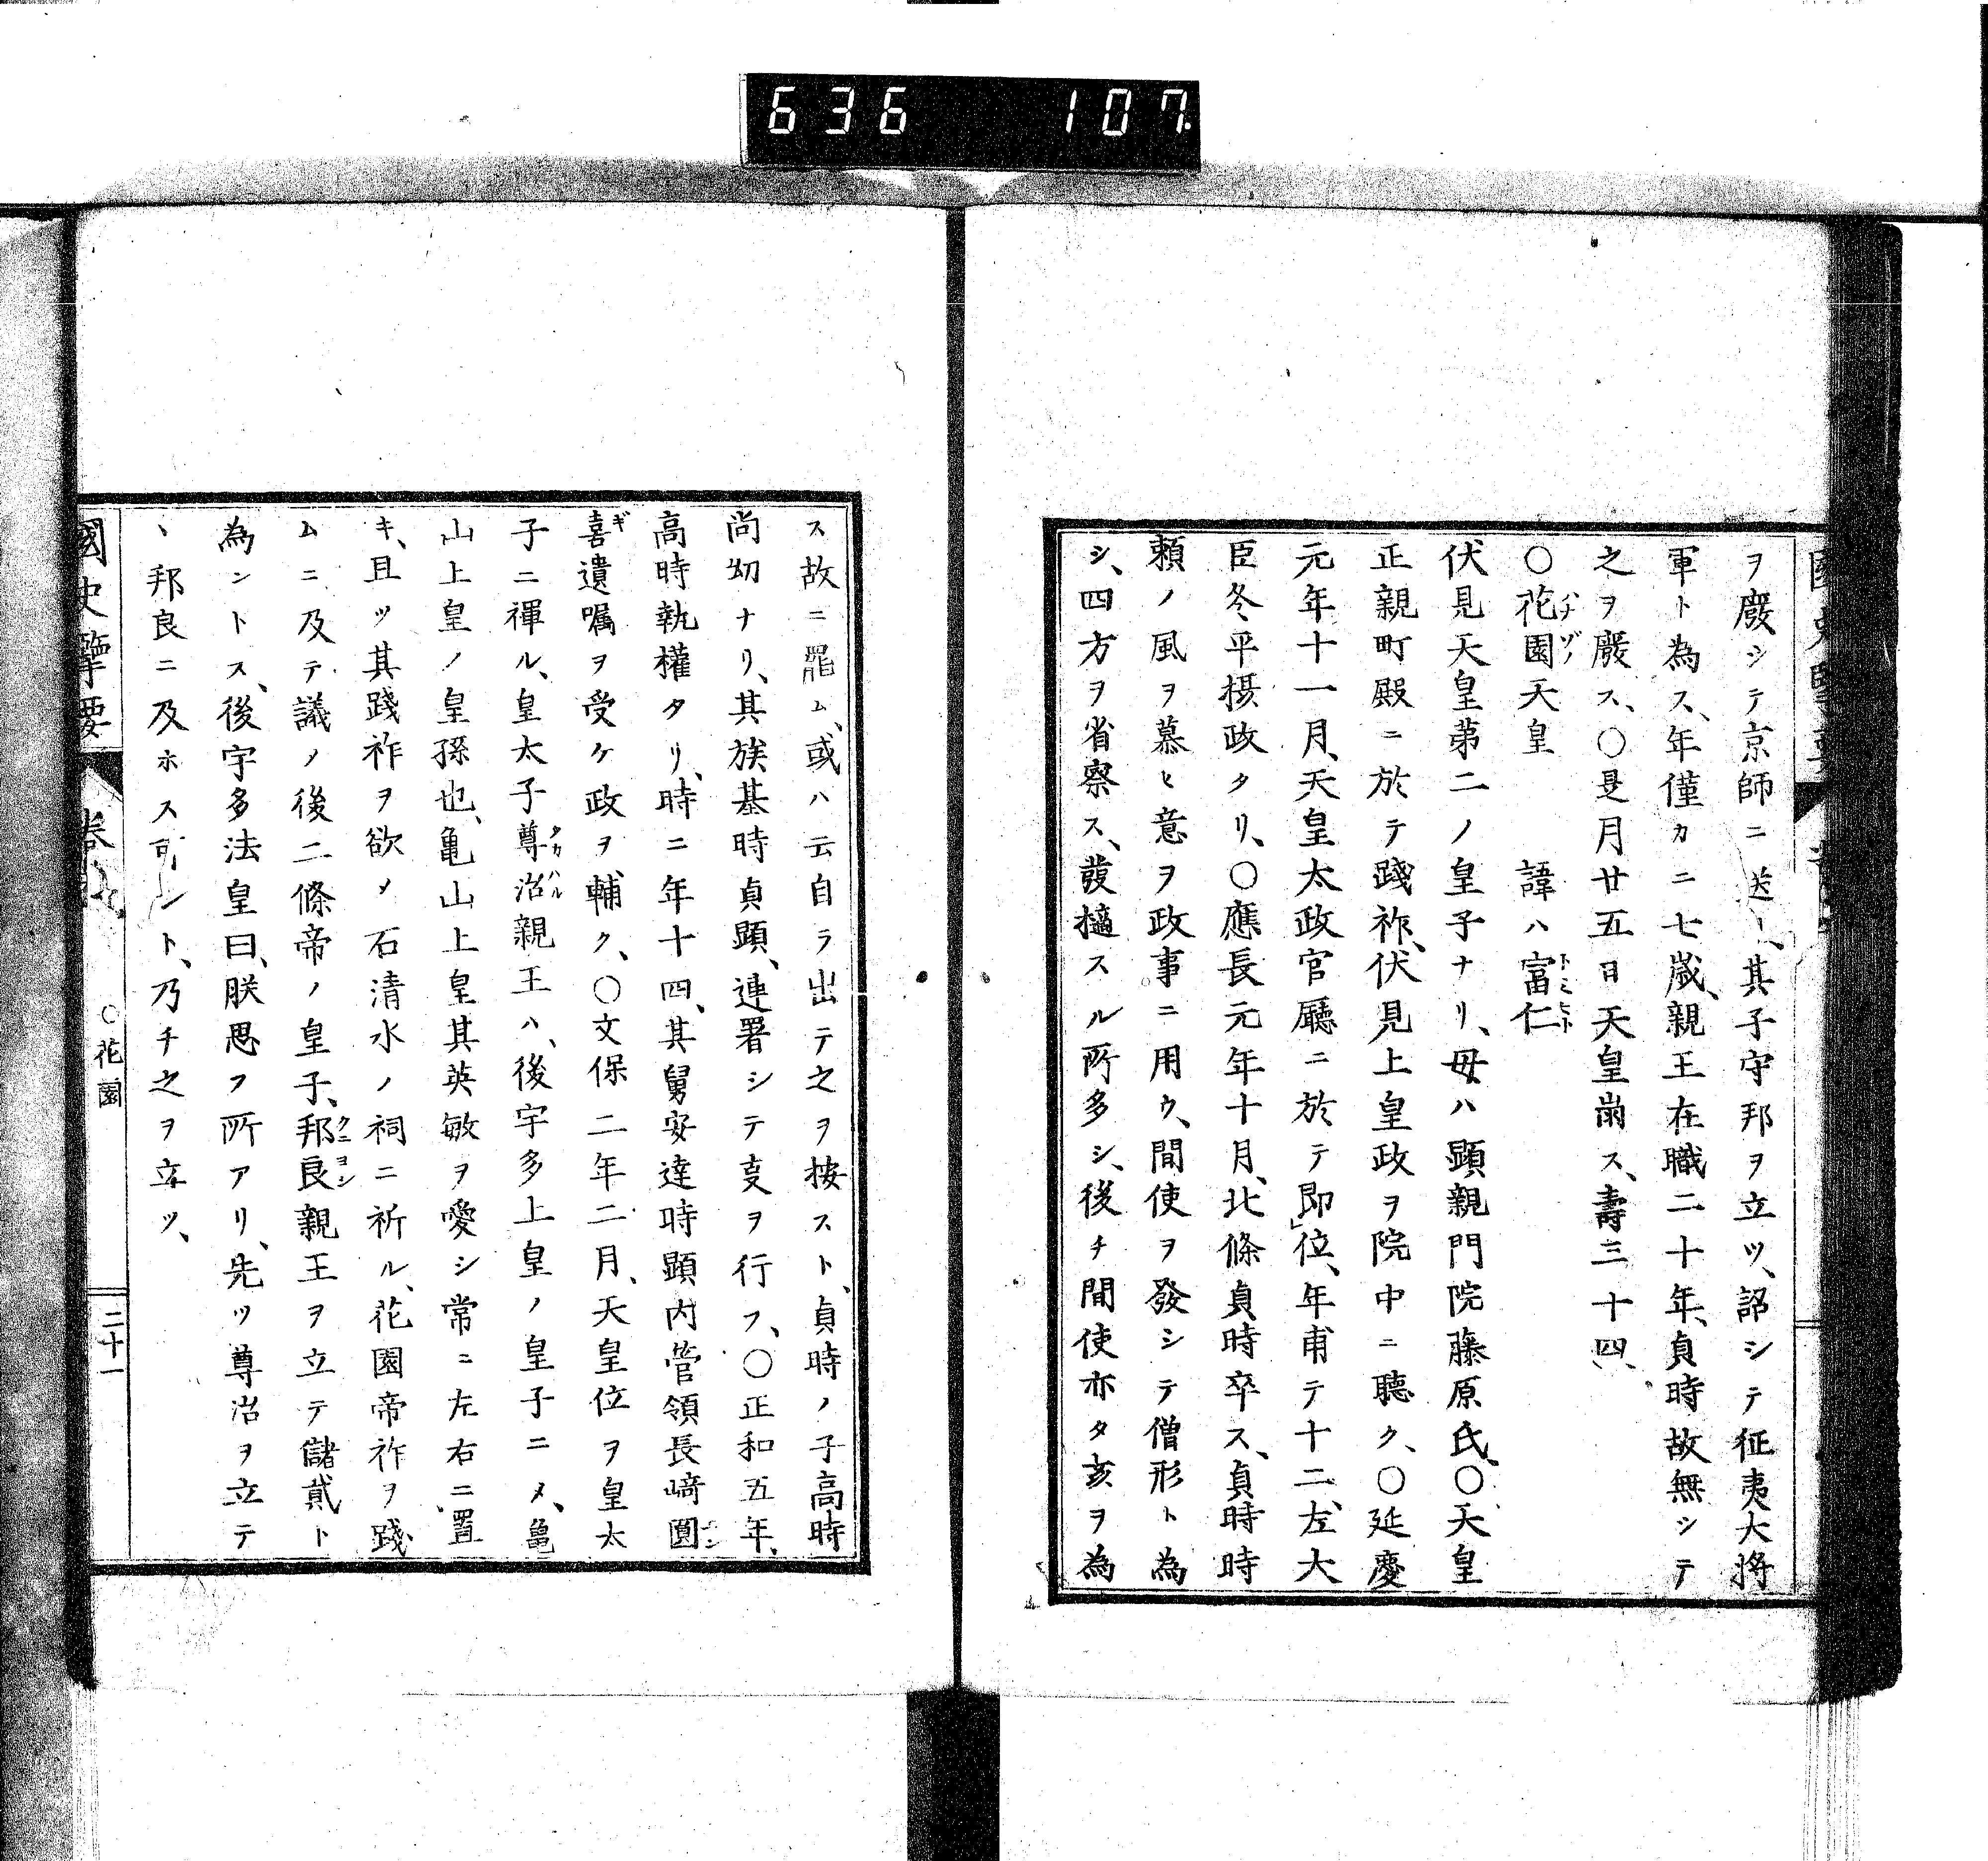 636 107
ヲ廢シテ京師ニ送リ、其子守邦ヲ立ツ、詔シテ征夷大將
軍ト為ス、年僅カニ七歳、親王在職二十年、貞時故無シテ
之ヲ廢ス、〇是月廿五日天皇崩ス、壽三十四、
〇花園天皇 諱ハ富仁
伏見天皇第二ノ皇子ナリ、母ハ顕親門院藤原氏、〇天皇
正親町殿ニ於テ踐祚、伏見上皇政ヲ院中ニ聽ク、〇延慶
元年十一月、天皇太政官廳ニ於テ即位、年甫テ十二、左大
臣冬平摂政タリ、〇應長元年十月、北條貞時卒ス、貞時時
頼ノ風ヲ慕ヒ意ヲ政事ニ用ウ、間使ヲ發シテ僧形ト為
シ、四方ヲ省察ス、發擿スル所多シ、後チ間使亦タ姦ヲ為
ス故ニ罷ム、或ハ云自ラ出テ之ヲ按スト、貞時ノ子高時
尚幼ナリ、其族基時貞顕、連署シテ事ヲ行フ、〇正和五年、
高時執權タリ、時ニ年十四、其舅安達時顕内管領長﨑圓
喜遺嘱ヲ受ケ政ヲ輔ク、〇文保二年二月、天皇位ヲ皇太
子ニ禪ル、皇太子尊治親王ハ、後宇多上皇ノ皇子ニメ、亀
山上皇ノ皇孫也、亀山上皇其英敏ヲ愛シ常ニ左右ニ置
キ、且ツ其踐祚ヲ欲メ石清水ノ祠ニ祈ル、花園帝祚ヲ踐
ムニ及テ議ノ後二條帝ノ皇子、邦良親王ヲ立テ儲貳ト
為ントス、後宇多法皇曰、朕思フ所アリ、先ツ尊治ヲ立テ
、邦良ニ及ホス可シト、乃チ之ヲ立ツ、
國史擥要 卷 〇花園 二十一